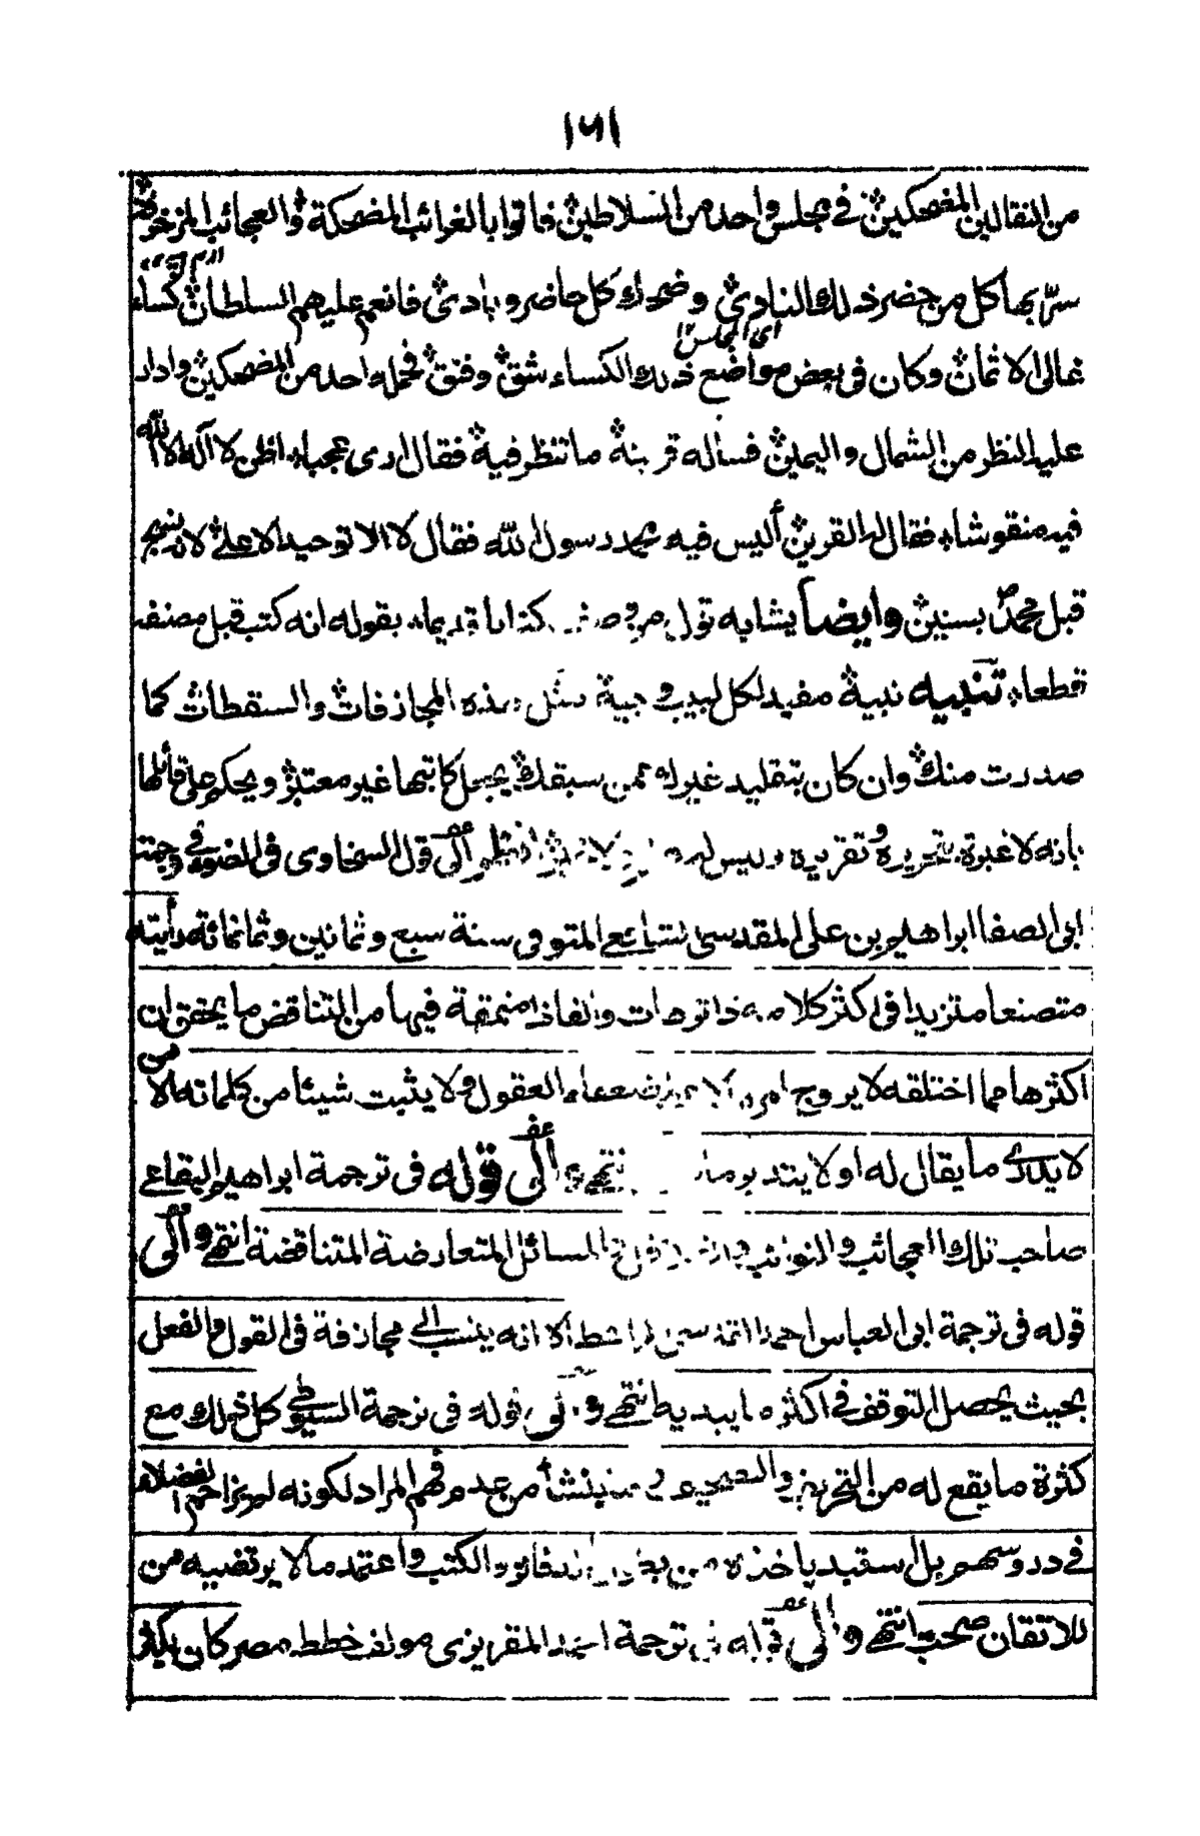 ١٦١
من النقالين المضحكين في مجلس واحد من السلاطين فاتوا بالغرائب المضحكة والعجائب المزخرفة
سرّ بها كل من حضر ذلك النادي وضحك كل حاضر وبادي فانعم عليهم السلطان كساء
اى المجلس
غالى الاثمان وكان في بعض مواضع ذلك الكساء شق وفتق فحمله احد من المضحكين وادار
عليه النظر من الشمال واليمين فسأله قرينة ما تنظر فيه فقال ارى عجبا اظن لا آله الا الله
فيه منقوشا فقال له القرين أليس فيه محمد رسول الله فقال لا الا توحيد الاعلى لانه نسج
قبل محمد بسنين وايضا يشابه قول من كتابا قديما بقوله انه كتب قبل مصنفه
قطعا تنبيه نبيه مفيد لكل لبيب وجيه مثل هذه المجازفات والسقطات كما
صدرت منك وان كان بتقليد غيرك ممن سبقك يجعل كاتبها غير معتبر ويحكم على قائلها
بانه لا عبرة بتحريره وتقريره وليس انظر الى قول السخاوى في الضوء في ترجمة
ابى الصفا ابراهيم بن على المقدسى المتوفى سنة سبع وثمانين وثمانمائة رأيته
متصنعا متزيدا في اكثر كلامه ذا ترهات والفاظ منمقة فيها من التناقض ما يحقق ان
اكثرها مما اختلقه لا يروج امره الا على ضعفاء العقول ولا يثبت شيئا من كلماته الا من
لا يدرى ما يقال له او لا يتدبر ما انتهى والى قوله في ترجمة ابراهيم البقاعى
صاحب تلك العجائب والنوائب المسائل المتعارضة المتناقضة انتهى والى
قوله في ترجمة ابى العباس احمد القدسى الواعظ الا انه ينسب الى مجازفة في القول والفعل
بحيث يحصل التوقف في اكثر ما يبديه انتهى والى قوله في ترجمة السيوطى كل ذلك مع
كثرة ما يقع له من التحريف والتصحيف وما ينشأ من عدم فهم المراد لكونه لم يزاحم الفضلاء
في دروسهم بل استبد باخذه من بطون الدفاتر والكتب واعتمد ما لا يرتضيه من
للاتقان صحب انتهى والى قوله في ترجمة احمد المقريزى مولف خطط مصر كان يكثر